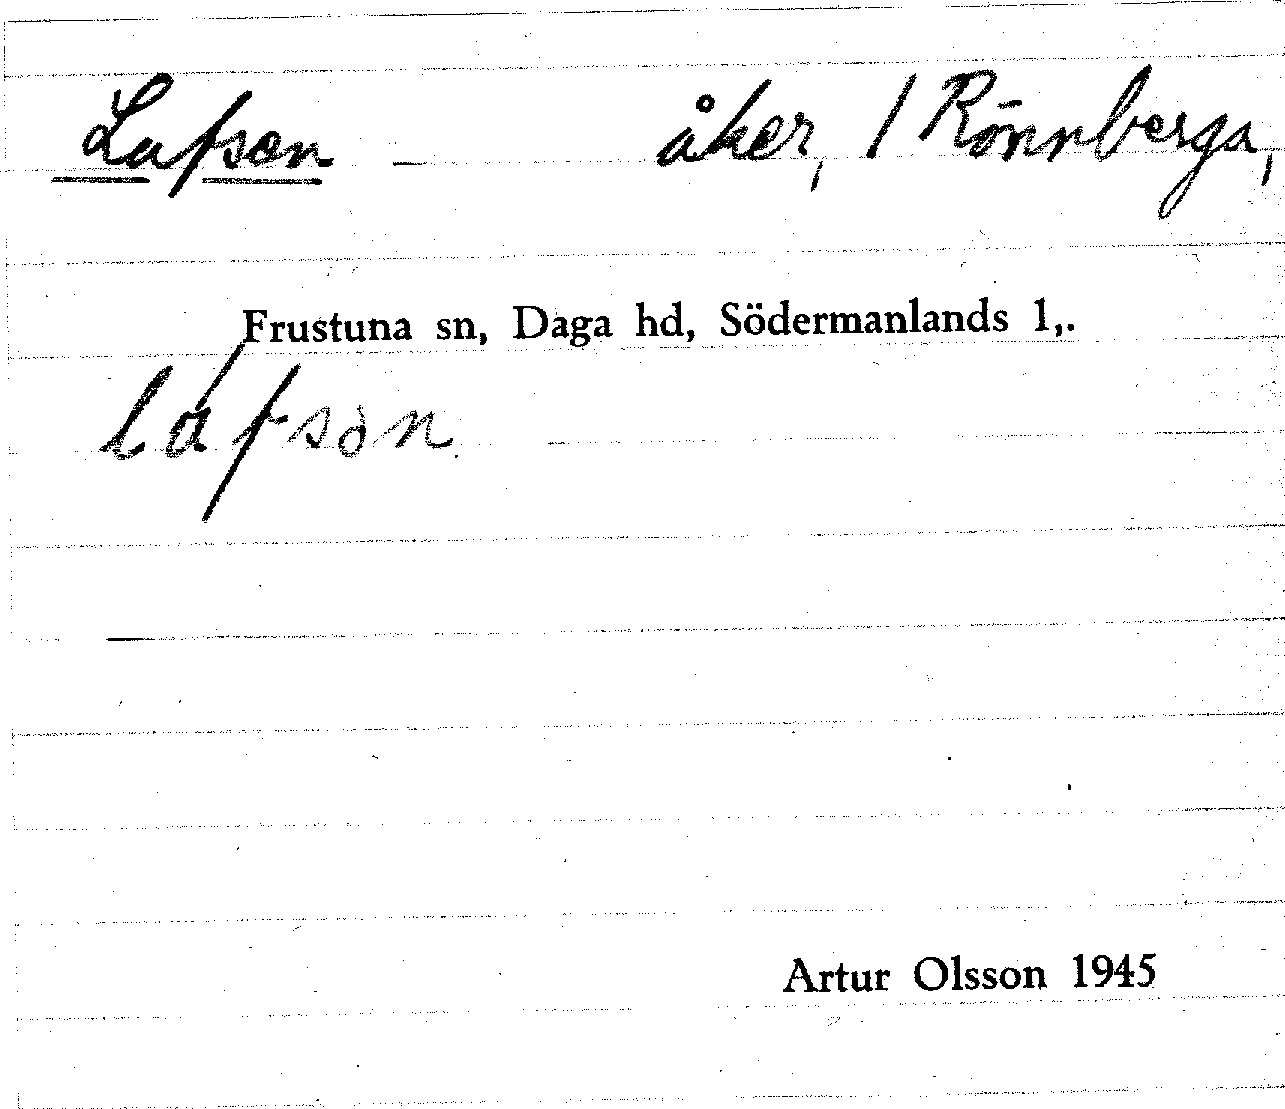 Lafsen – åker, / Rönnberga,
Frustuna sn, Daga hd, Södermanlands l,.
láfsòn
Artur Olsson 1945